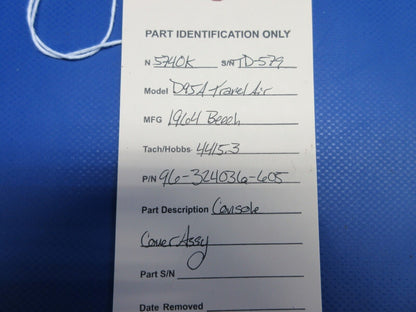 PART IDENTIFICATION ONLY
N 5740K S/N TD-579
Model D95A Travel Air
MFG 1964 Beech
Tach/Hobbs 4415.3
P/N 96-324036-605
Part Description Console
Cover Assy
Part S/N
Date Removed